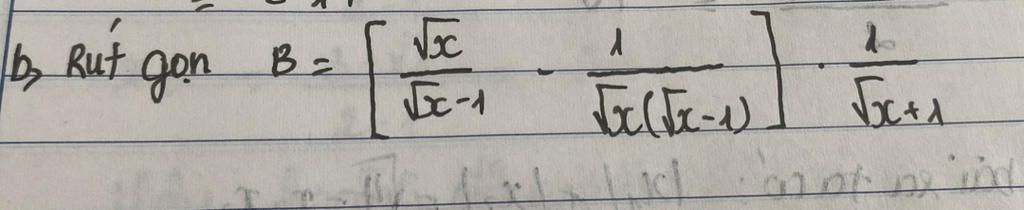 b, Rút gọn B = [ √x / (√x - 1) - 1 / (√x(√x - 1)) ] . 1 / (√x + 1)